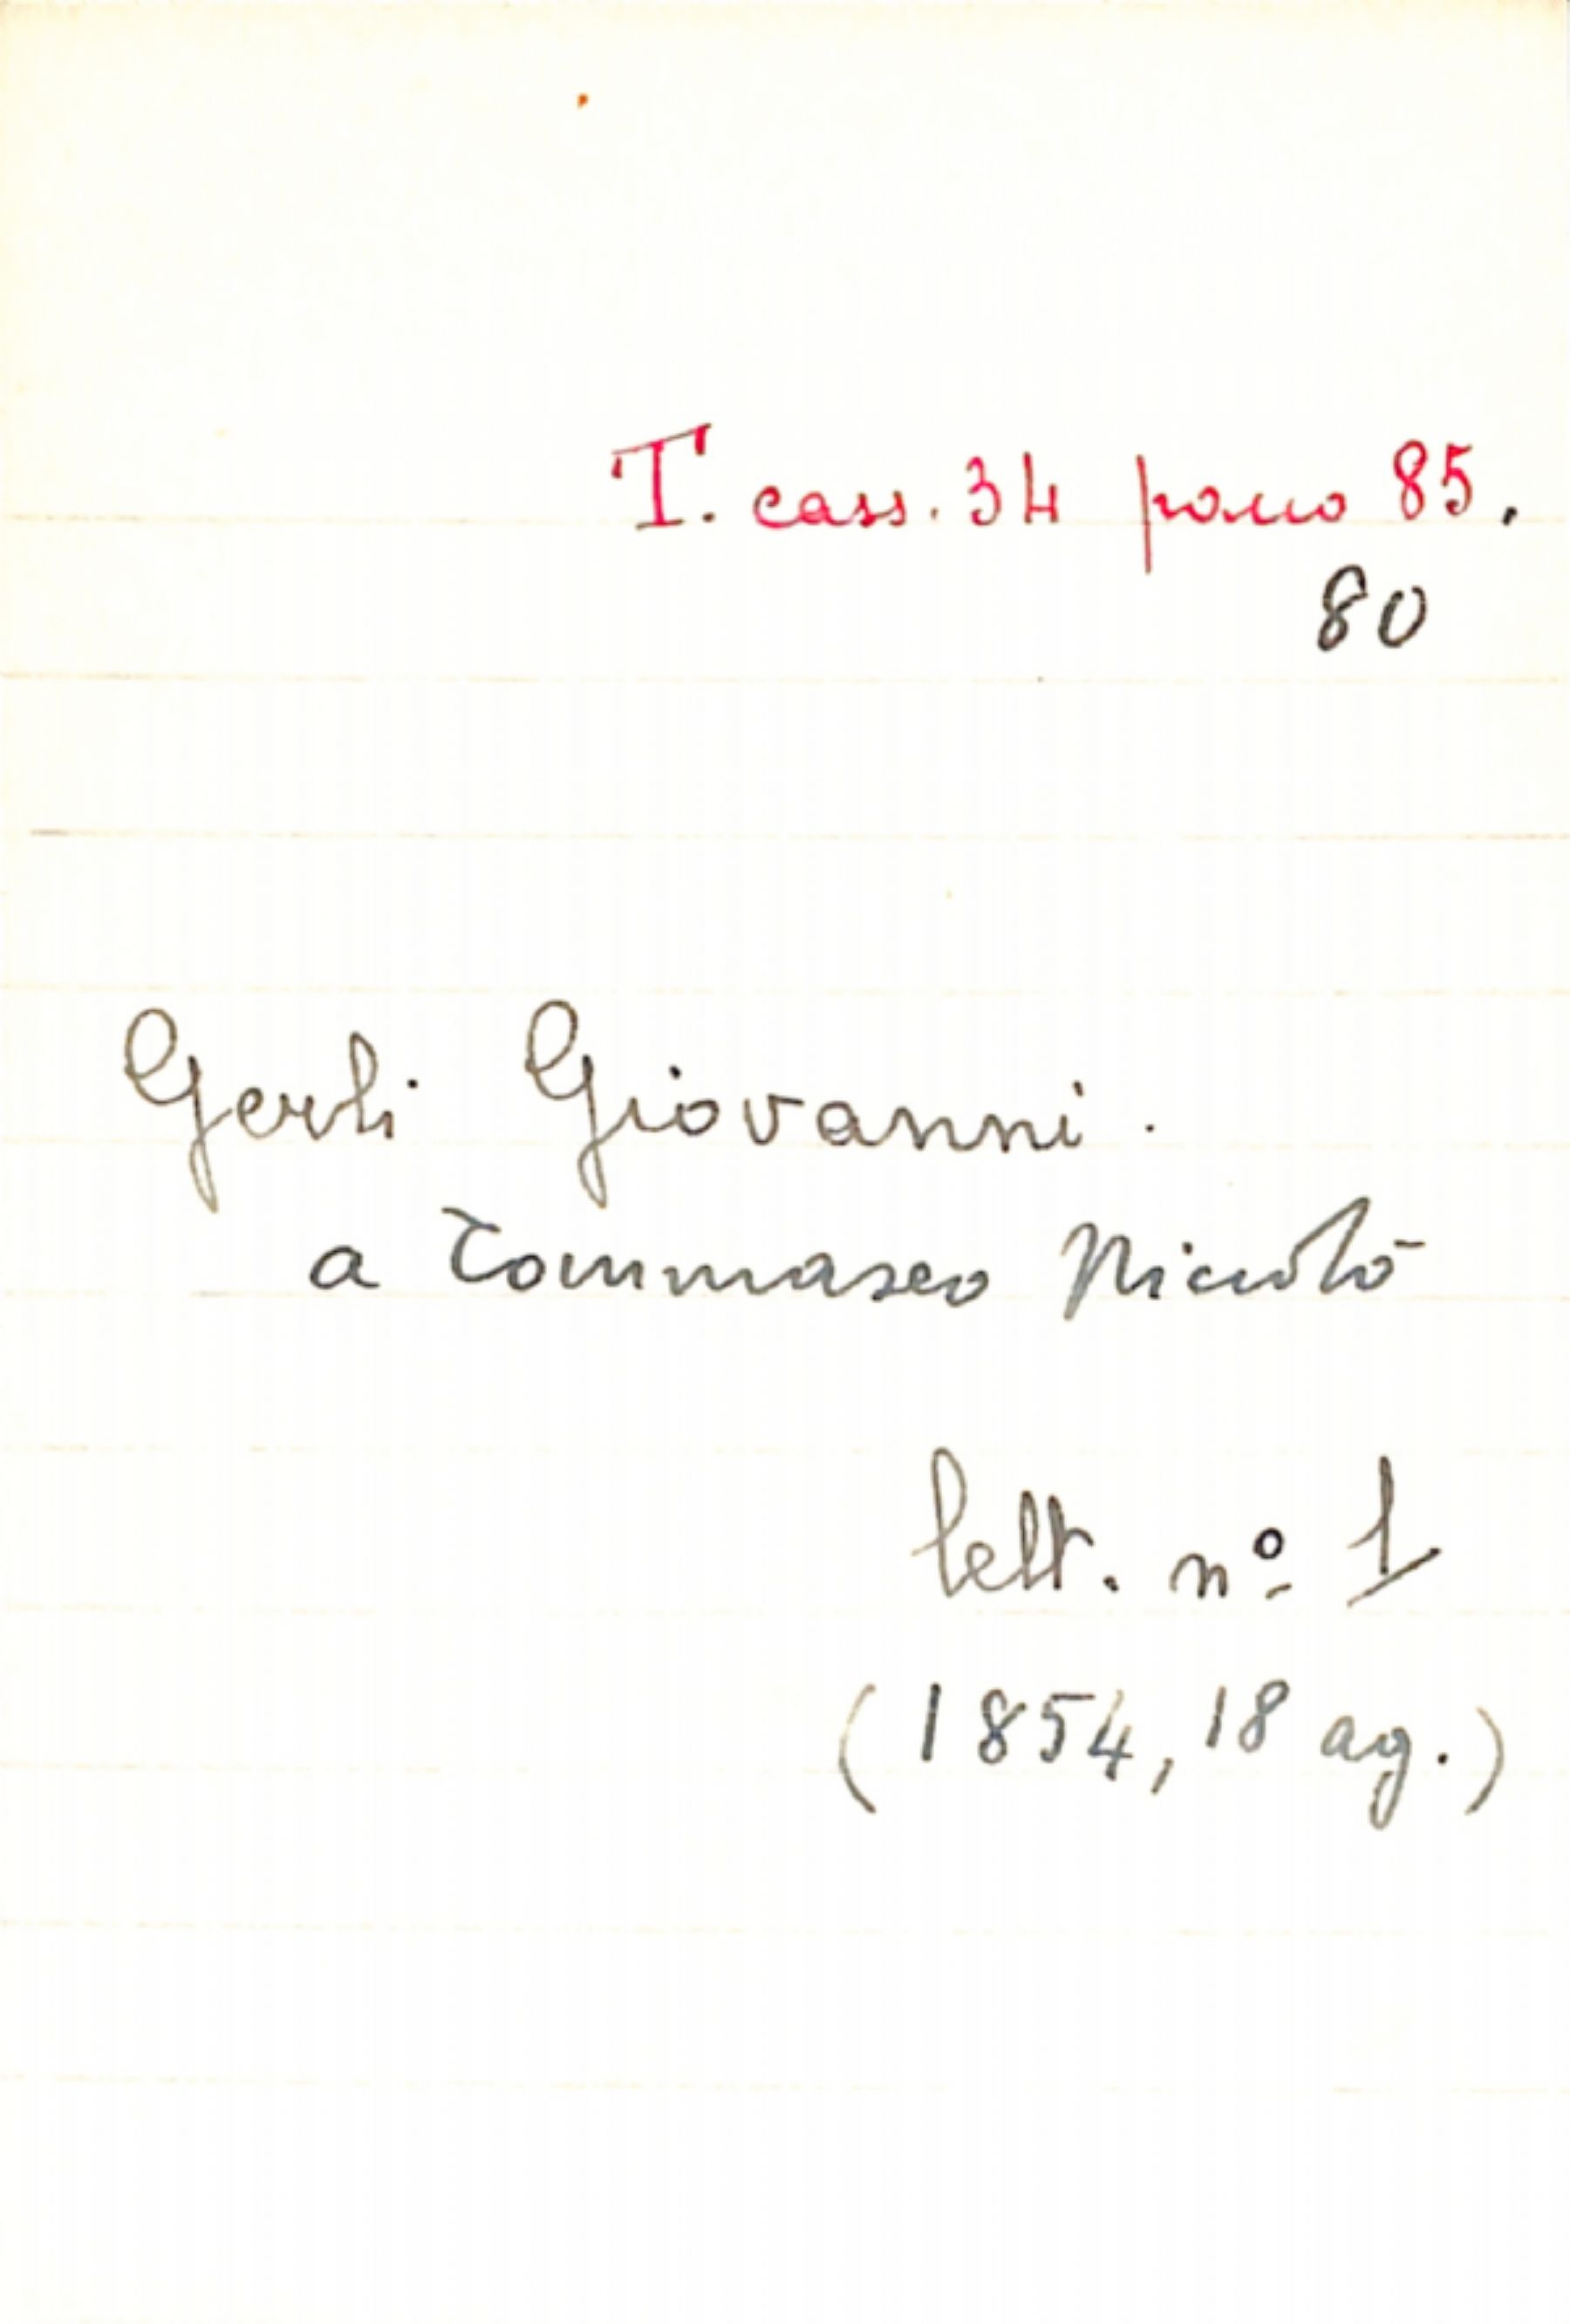 T. cass. 34 panno 85.
80
Gerli Giovanni.
a Tommaseo Niccolò
lett. nº 1
(1854, 18 ag.)